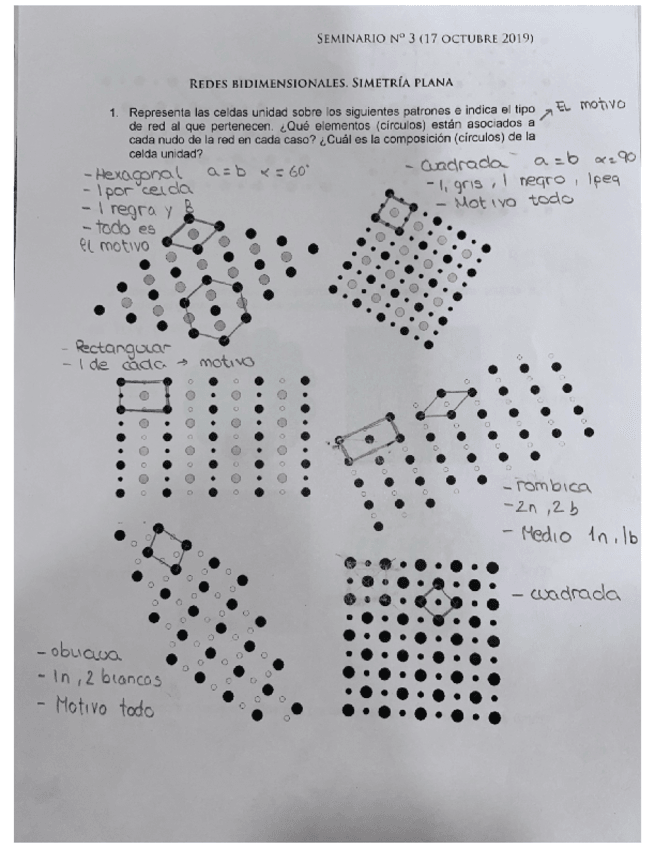 SEMINARIO Nº 3 (17 OCTUBRE 2019)
REDES BIDIMENSIONALES. SIMETRÍA PLANA
1. Representa las celdas unidad sobre los siguientes patrones e indica el tipo
de red al que pertenecen. ¿Qué elementos (círculos) están asociados a
cada nudo de la red en cada caso? ¿Cuál es la composición (círculos) de la
celda unidad?
→ EL motivo
- Hexagonal a=b α=60°
- 1 por celda
- 1 negra y B
- todo es
el motivo
- Cuadrada a=b α=90
- 1, gris, 1 negro, 1peq
- Motivo todo
- Rectangular
- 1 de cada → motivo
- rombica
- 2n, 2b
- Medio 1n, 1b
- cuadrada
- oblicua
- 1n, 2 blancos
- Motivo todo